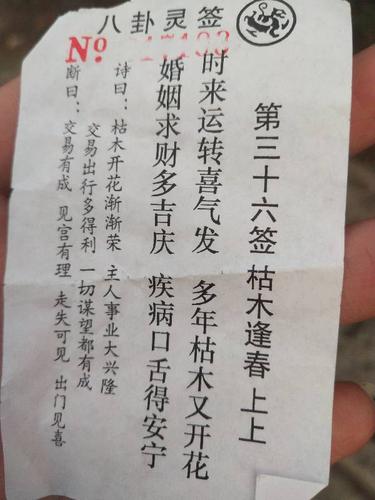 八卦灵签
No.
第三十六签 枯木逢春 上上
时来运转喜气发 多年枯木又开花
婚姻求财多吉庆 疾病口舌得安宁
诗曰：枯木开花渐渐荣 主人事业大兴隆
交易出行多得利 一切谋望都有成
断曰：交易有成 见宫有理 走失可见 出门见喜